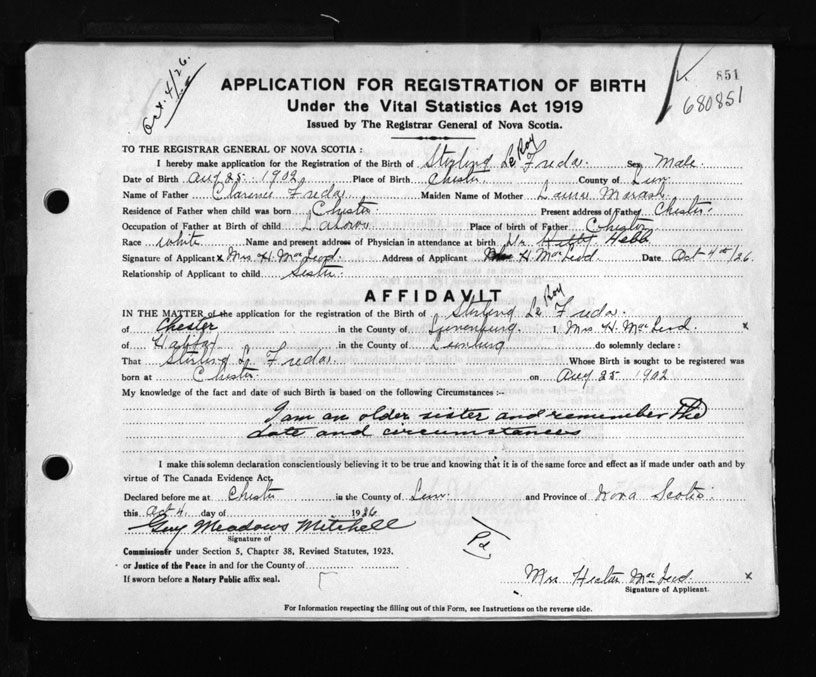 Oct. 4/26.
851
680851
APPLICATION FOR REGISTRATION OF BIRTH
Under the Vital Statistics Act 1919
Issued by The Registrar General of Nova Scotia.
TO THE REGISTRAR GENERAL OF NOVA SCOTIA :
I hereby make application for the Registration of the Birth of Stirling Le Roy Freda. Sex Male.
Date of Birth Aug 25. 1902. Place of Birth Chester County of Lun.
Name of Father Clarence Freda Maiden Name of Mother Morash
Residence of Father when child was born Chester Present address of Father Chester.
Occupation of Father at Birth of child Place of birth of Father Chester
Race White Name and present address of Physician in attendance at birth Hebb
Signature of Applicant x Mrs. H. MacLeod. Address of Applicant H MacLeod Date Oct 4th/26.
Relationship of Applicant to child Sister.
AFFIDAVIT
IN THE MATTER of the application for the registration of the Birth of Stirling Le Roy Freda.
of Chester in the County of Lunenburg. I, Mrs H. MacLeod. x
of in the County of do solemnly declare :
That Stirling L Freda. Whose Birth is sought to be registered was
born at Chester. on Aug 25 1902
My knowledge of the fact and date of such Birth is based on the following Circumstances :-
I am an older sister and remember the
date and circumstances
I make this solemn declaration conscientiously believing it to be true and knowing that it is of the same force and effect as if made under oath and by
virtue of The Canada Evidence Act.
Declared before me at Chester is the County of Lun. and Province of Nova Scotia.
this Oct 4. day of 1926
Guy Meadows Mitchell
Signature of
Commissioner under Section 5, Chapter 38, Revised Statutes, 1923.
or Justice of the Peace in and for the County of
If sworn before a Notary Public affix seal.
Pd
Mrs MacLeod. x
Signature of Applicant.
For Information respecting the filling out of this Form, see Instructions on the reverse side.